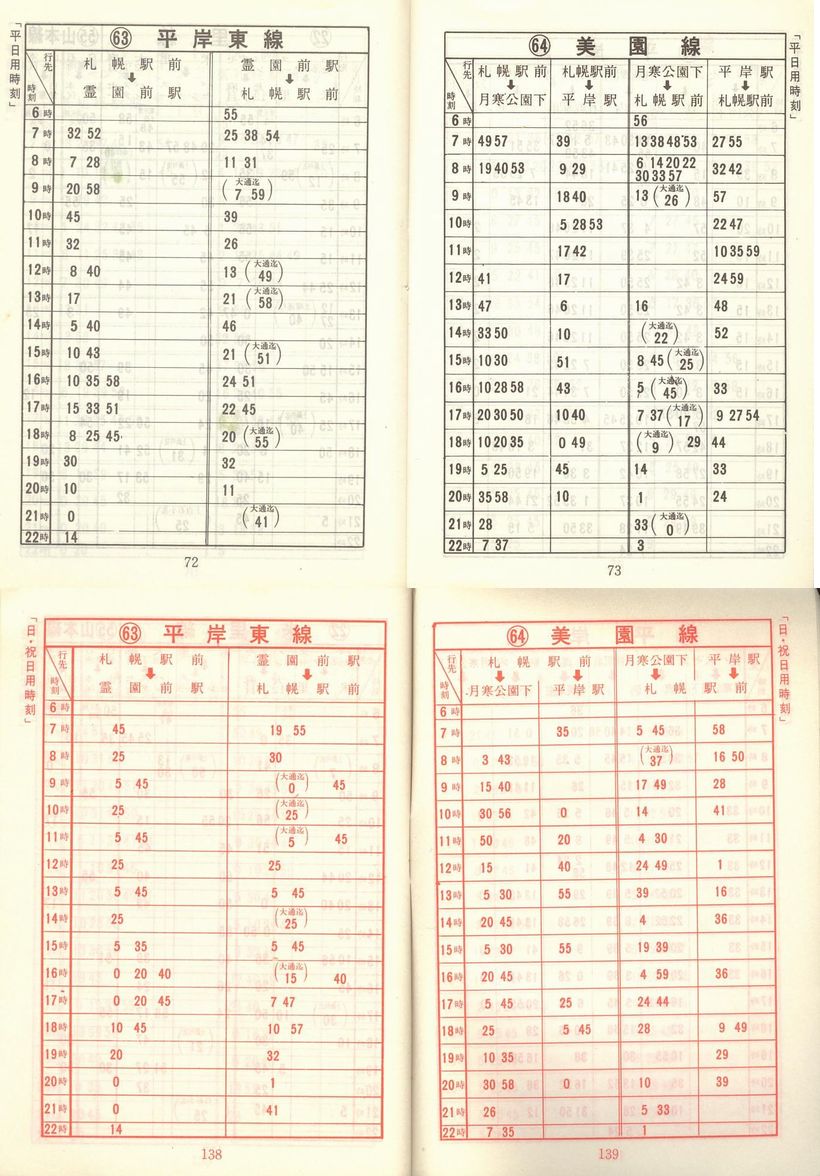 「平日用時刻」
63 平岸東線
行先 時刻 札幌駅前 ↓ 霊園前駅 霊園前駅 ↓ 札幌駅前
6時 55
7時 32 52 25 38 54
8時 7 28 11 31
9時 20 58 (大通迄 7 59)
10時 45 39
11時 32 26
12時 8 40 13 (大通迄 49)
13時 17 21 (大通迄 58)
14時 5 40 46
15時 10 43 21 (大通迄 51)
16時 10 35 58 24 51
17時 15 33 51 22 45
18時 8 25 45 20 (大通迄 55)
19時 30 32
20時 10 11
21時 0 (大通迄 41)
22時 14
72
「平日用時刻」
64 美園線
行先 時刻 札幌駅前 ↓ 月寒公園下 札幌駅前 ↓ 平岸駅 月寒公園下 ↓ 札幌駅前 平岸駅 ↓ 札幌駅前
6時 56
7時 49 57 39 13 38 48 53 27 55
8時 19 40 53 9 29 6 14 20 22 30 33 57 32 42
9時 18 40 13 (大通迄 26) 57
10時 5 28 53 22 47
11時 17 42 10 35 59
12時 41 17 24 59
13時 47 6 16 48
14時 33 50 10 (大通迄 22) 52
15時 10 30 51 8 45 (大通迄 25)
16時 10 28 58 43 5 (大通迄 45) 33
17時 20 30 50 10 40 7 37 (大通迄 17) 9 27 54
18時 10 20 35 0 49 (大通迄 9) 29 44
19時 5 25 45 14 33
20時 35 58 10 1 24
21時 28 33 (大通迄 0)
22時 7 37 3
73
「日・祝日用時刻」
63 平岸東線
行先 時刻 札幌駅前 ↓ 霊園前駅 霊園前駅 ↓ 札幌駅前
6時
7時 45 19 55
8時 25 30
9時 5 45 (大通迄 0) 45
10時 25 (大通迄 25)
11時 5 45 (大通迄 5) 45
12時 25 25
13時 5 45 5 45
14時 25 (大通迄 25)
15時 5 35 5 45
16時 0 20 40 (大通迄 15) 40
17時 0 20 45 7 47
18時 10 45 10 57
19時 20 32
20時 0 1
21時 0 41
22時 14
138
「日・祝日用時刻」
64 美園線
行先 時刻 札幌駅前 ↓ 月寒公園下 平岸駅 月寒公園下 平岸駅 ↓ 札幌駅前
6時
7時 35 5 45 58
8時 3 43 (大通迄 37) 16 50
9時 15 40 17 49 28
10時 30 56 0 14 41
11時 50 20 4 30
12時 15 40 24 49 1
13時 5 30 55 39 16
14時 20 45 4 36
15時 5 30 55 19 39
16時 20 45 4 59 36
17時 5 45 25 24 44
18時 25 5 45 28 9 49
19時 10 35 29
20時 30 58 0 16 10 39
21時 26 5 33
22時 7 35 1
139